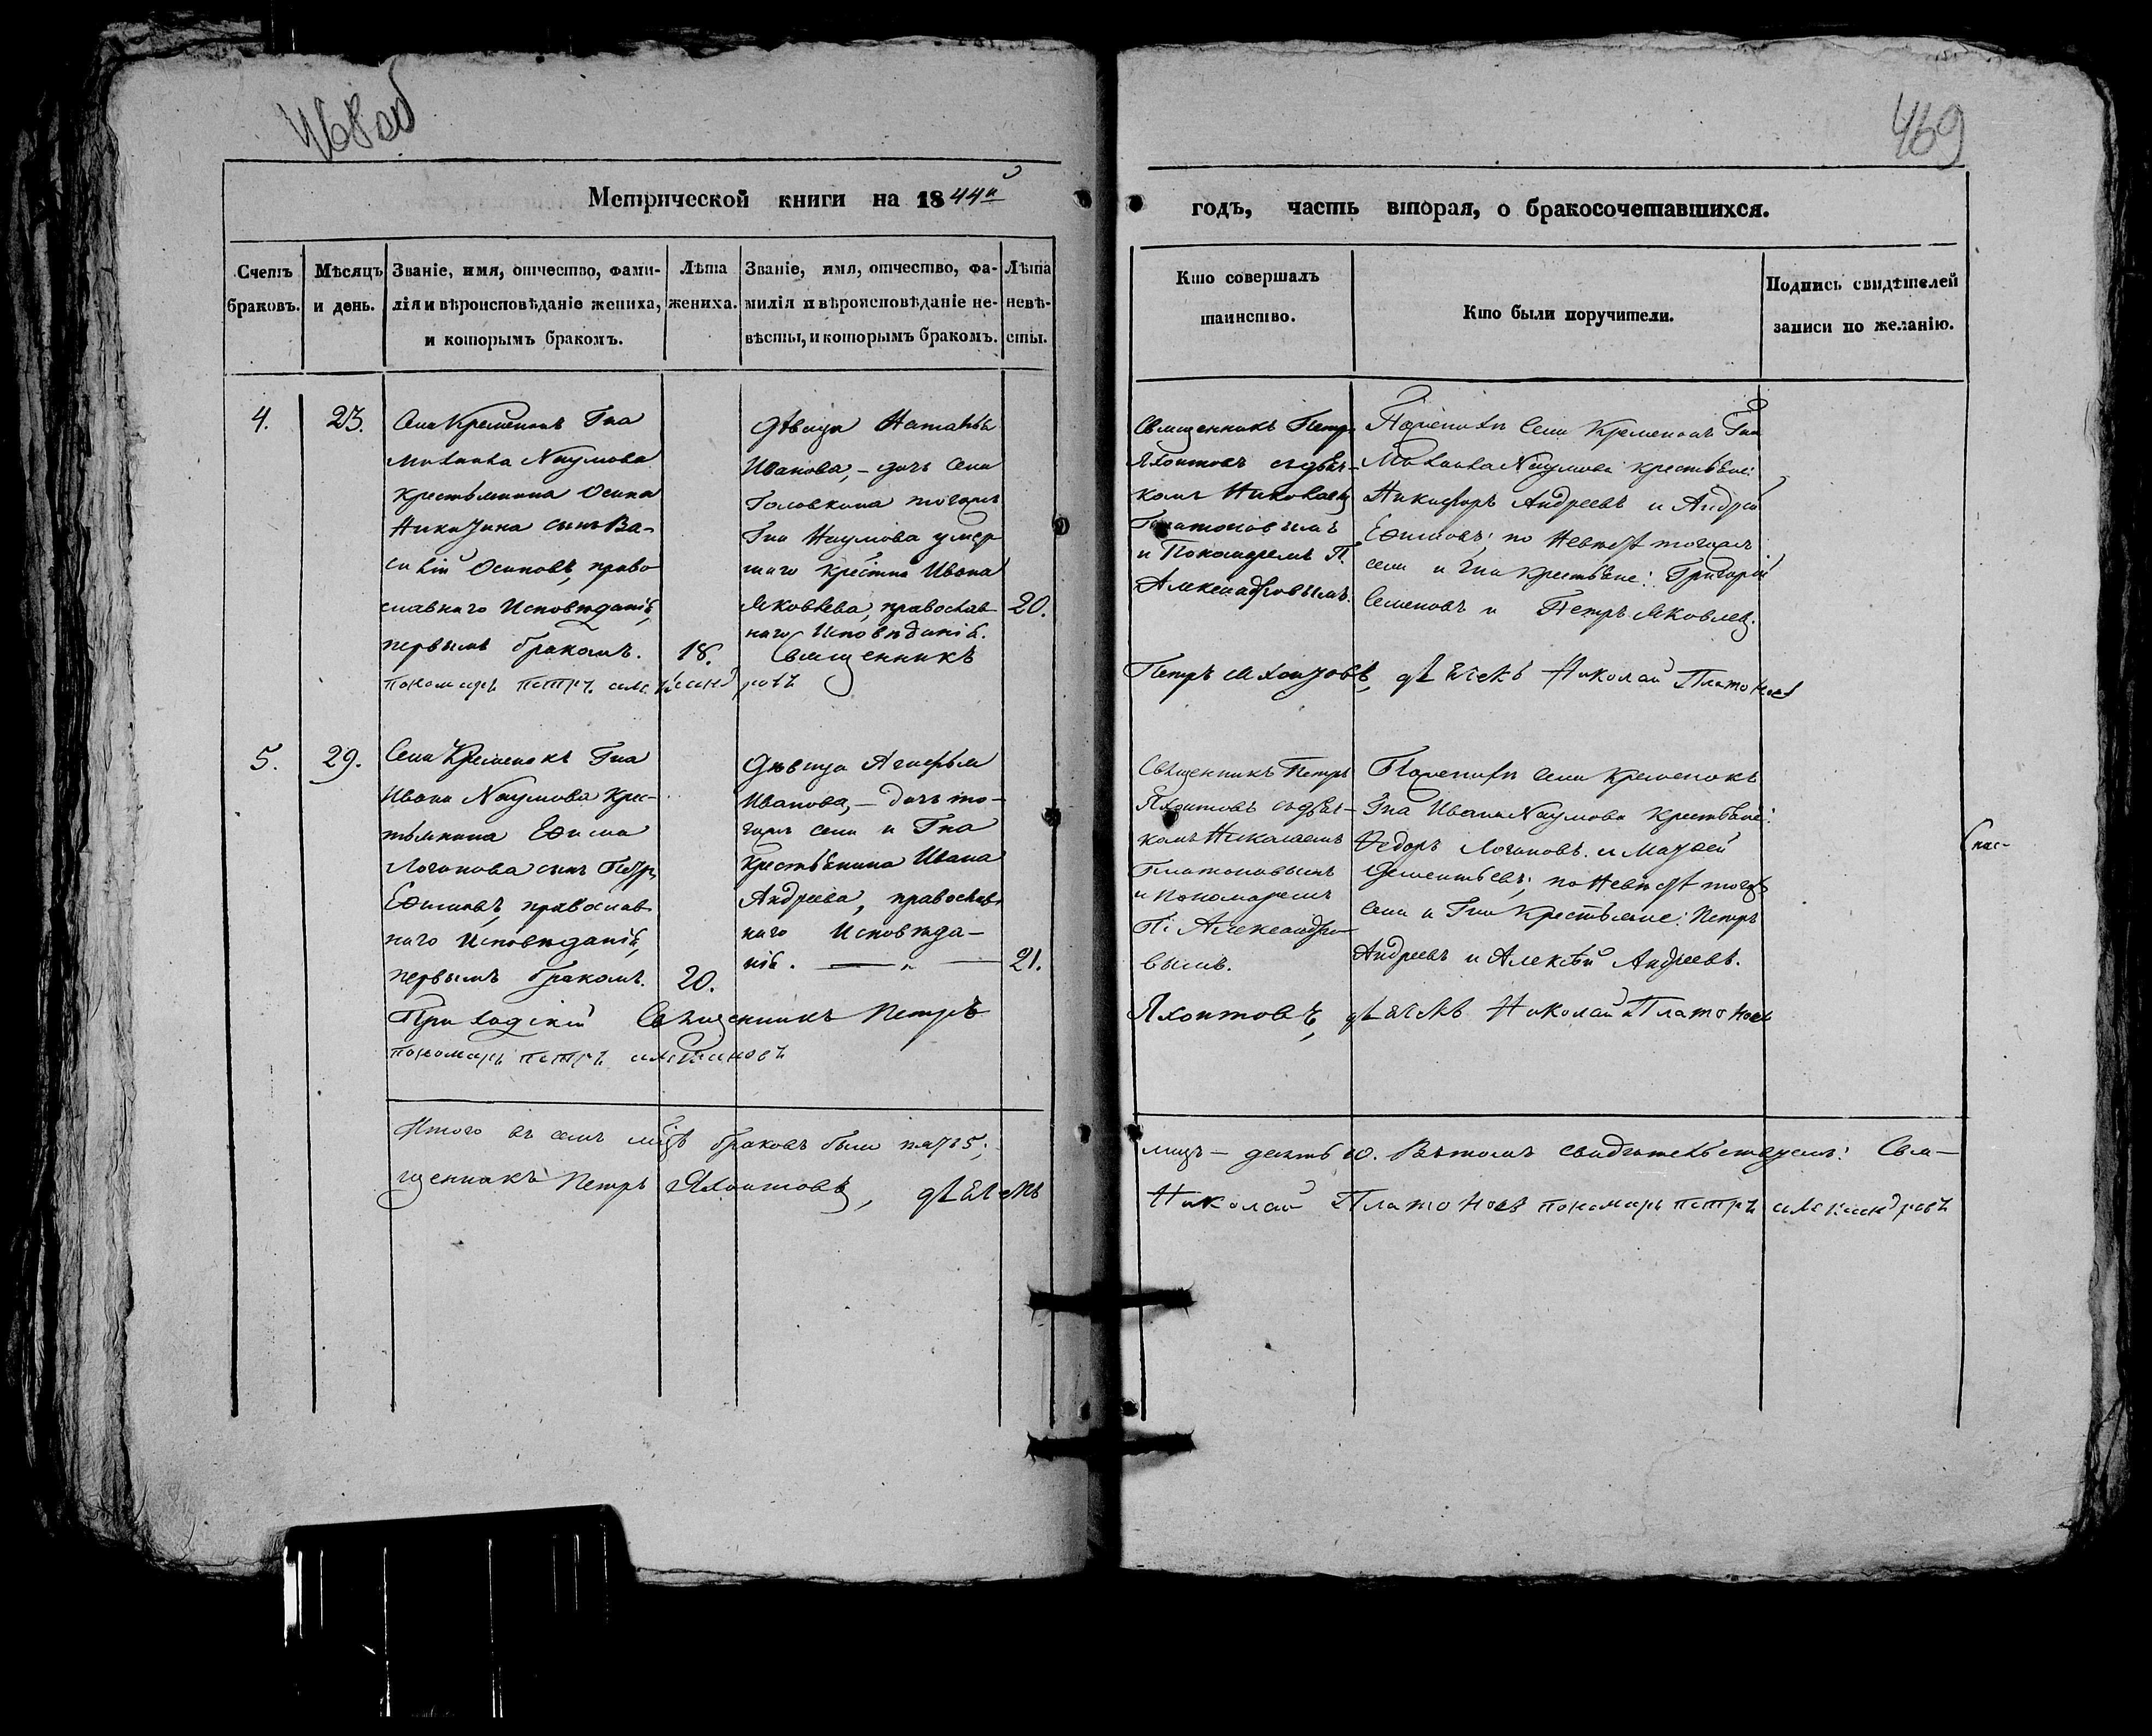 468 об
469
Метрической книги на 1844й
годъ, часть вторая, о бракосочетавшихся.
Счетъ браковъ.
Мѣсяцъ и день.
Званіе, имя, отчество, фами-
лія и вѣроисповѣданіе жениха,
и которымъ бракомъ.
Лѣта
жениха.
Званіе, имя, отчество, фа-
милія и вѣроисповѣданіе не-
вѣсты, и которымъ бракомъ.
Лѣта
невѣ-
сты.
Кто совершалъ
таинство.
Кто были поручители.
Подпись свидѣтелей
записи по желанію.
4.
23.
Села Кременокъ Гна
Михаила Наумова
крестьянина Осипа
Никитина сынъ Ва-
силій Осиповъ, право-
славнаго Исповѣданія,
первымъ бракомъ.
18.
Дѣвица Наталья
Иванова, – дочь села
Головкина тогожъ
Гна Наумова умер
шаго крестна Ивана
Яковлева, православ
наго Исповѣданія.
20.
Священникъ Петръ
Яхонтовъ съ дьяч-
комъ Николаемъ
Платоновымъ
и Пономаремъ П.
Александровымъ.
По женихѣ села Кременокъ Гна
Михаила Наумова крестьяне:
Никифоръ Андреевъ и Андрей
Ефимовъ; по Невѣстѣ тогожъ
села и Гна крестьяне: Григорій
Семеновъ и Петръ Яковлевъ.
Священникъ
Петръ Яхонтовъ, дьячекъ Николай Платоновъ
пономарь петръ александровъ
5.
29.
Села Кременокъ Гна
Ивана Наумова крес-
тьянина Ефима
Логинова сынъ Петръ
Ефимовъ, православ
наго Исповѣданія,
первымъ бракомъ.
20.
Дѣвица Агафья
Иванова, – дочь то-
гожъ села и Гна
крестьянина Ивана
Андреева, православ
наго Исповѣда-
нія.
21.
Священникъ Петръ
Яхонтовъ съ дьяч-
комъ Николаемъ
Платоновымъ
и пономаремъ
П: Александро-
вымъ.
По женихѣ села Кременокъ
Гна Ивана Наумова крестьяне:
Федоръ Логиновъ и Матвей
Дементьевъ; по Невѣстѣ тогожъ
села и Гна крестьяне: Петръ
Андреевъ и Алексѣй Андреевъ.
Приходскій Священникъ Петръ
Яхонтовъ, дьячекъ Николай Платоновъ
пономарь петръ
Итого въ семъ мѣцѣ браковъ было пять 5;
лицъ – десять 10. Въ томъ свидѣтельствуемъ: Свя-
щенникъ Петръ Яхонтовъ, дьячекъ
Николай Платоновъ пономарь петръ александровъ